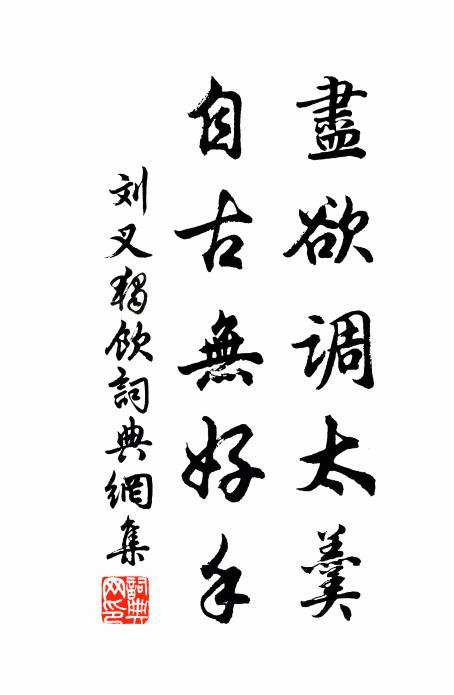 盡欲調太羹
自古無好手
刘叉獨飲詞典網集
詞典网印